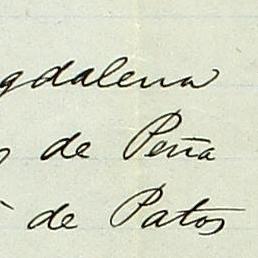 gdalena
de Peña
de Patos